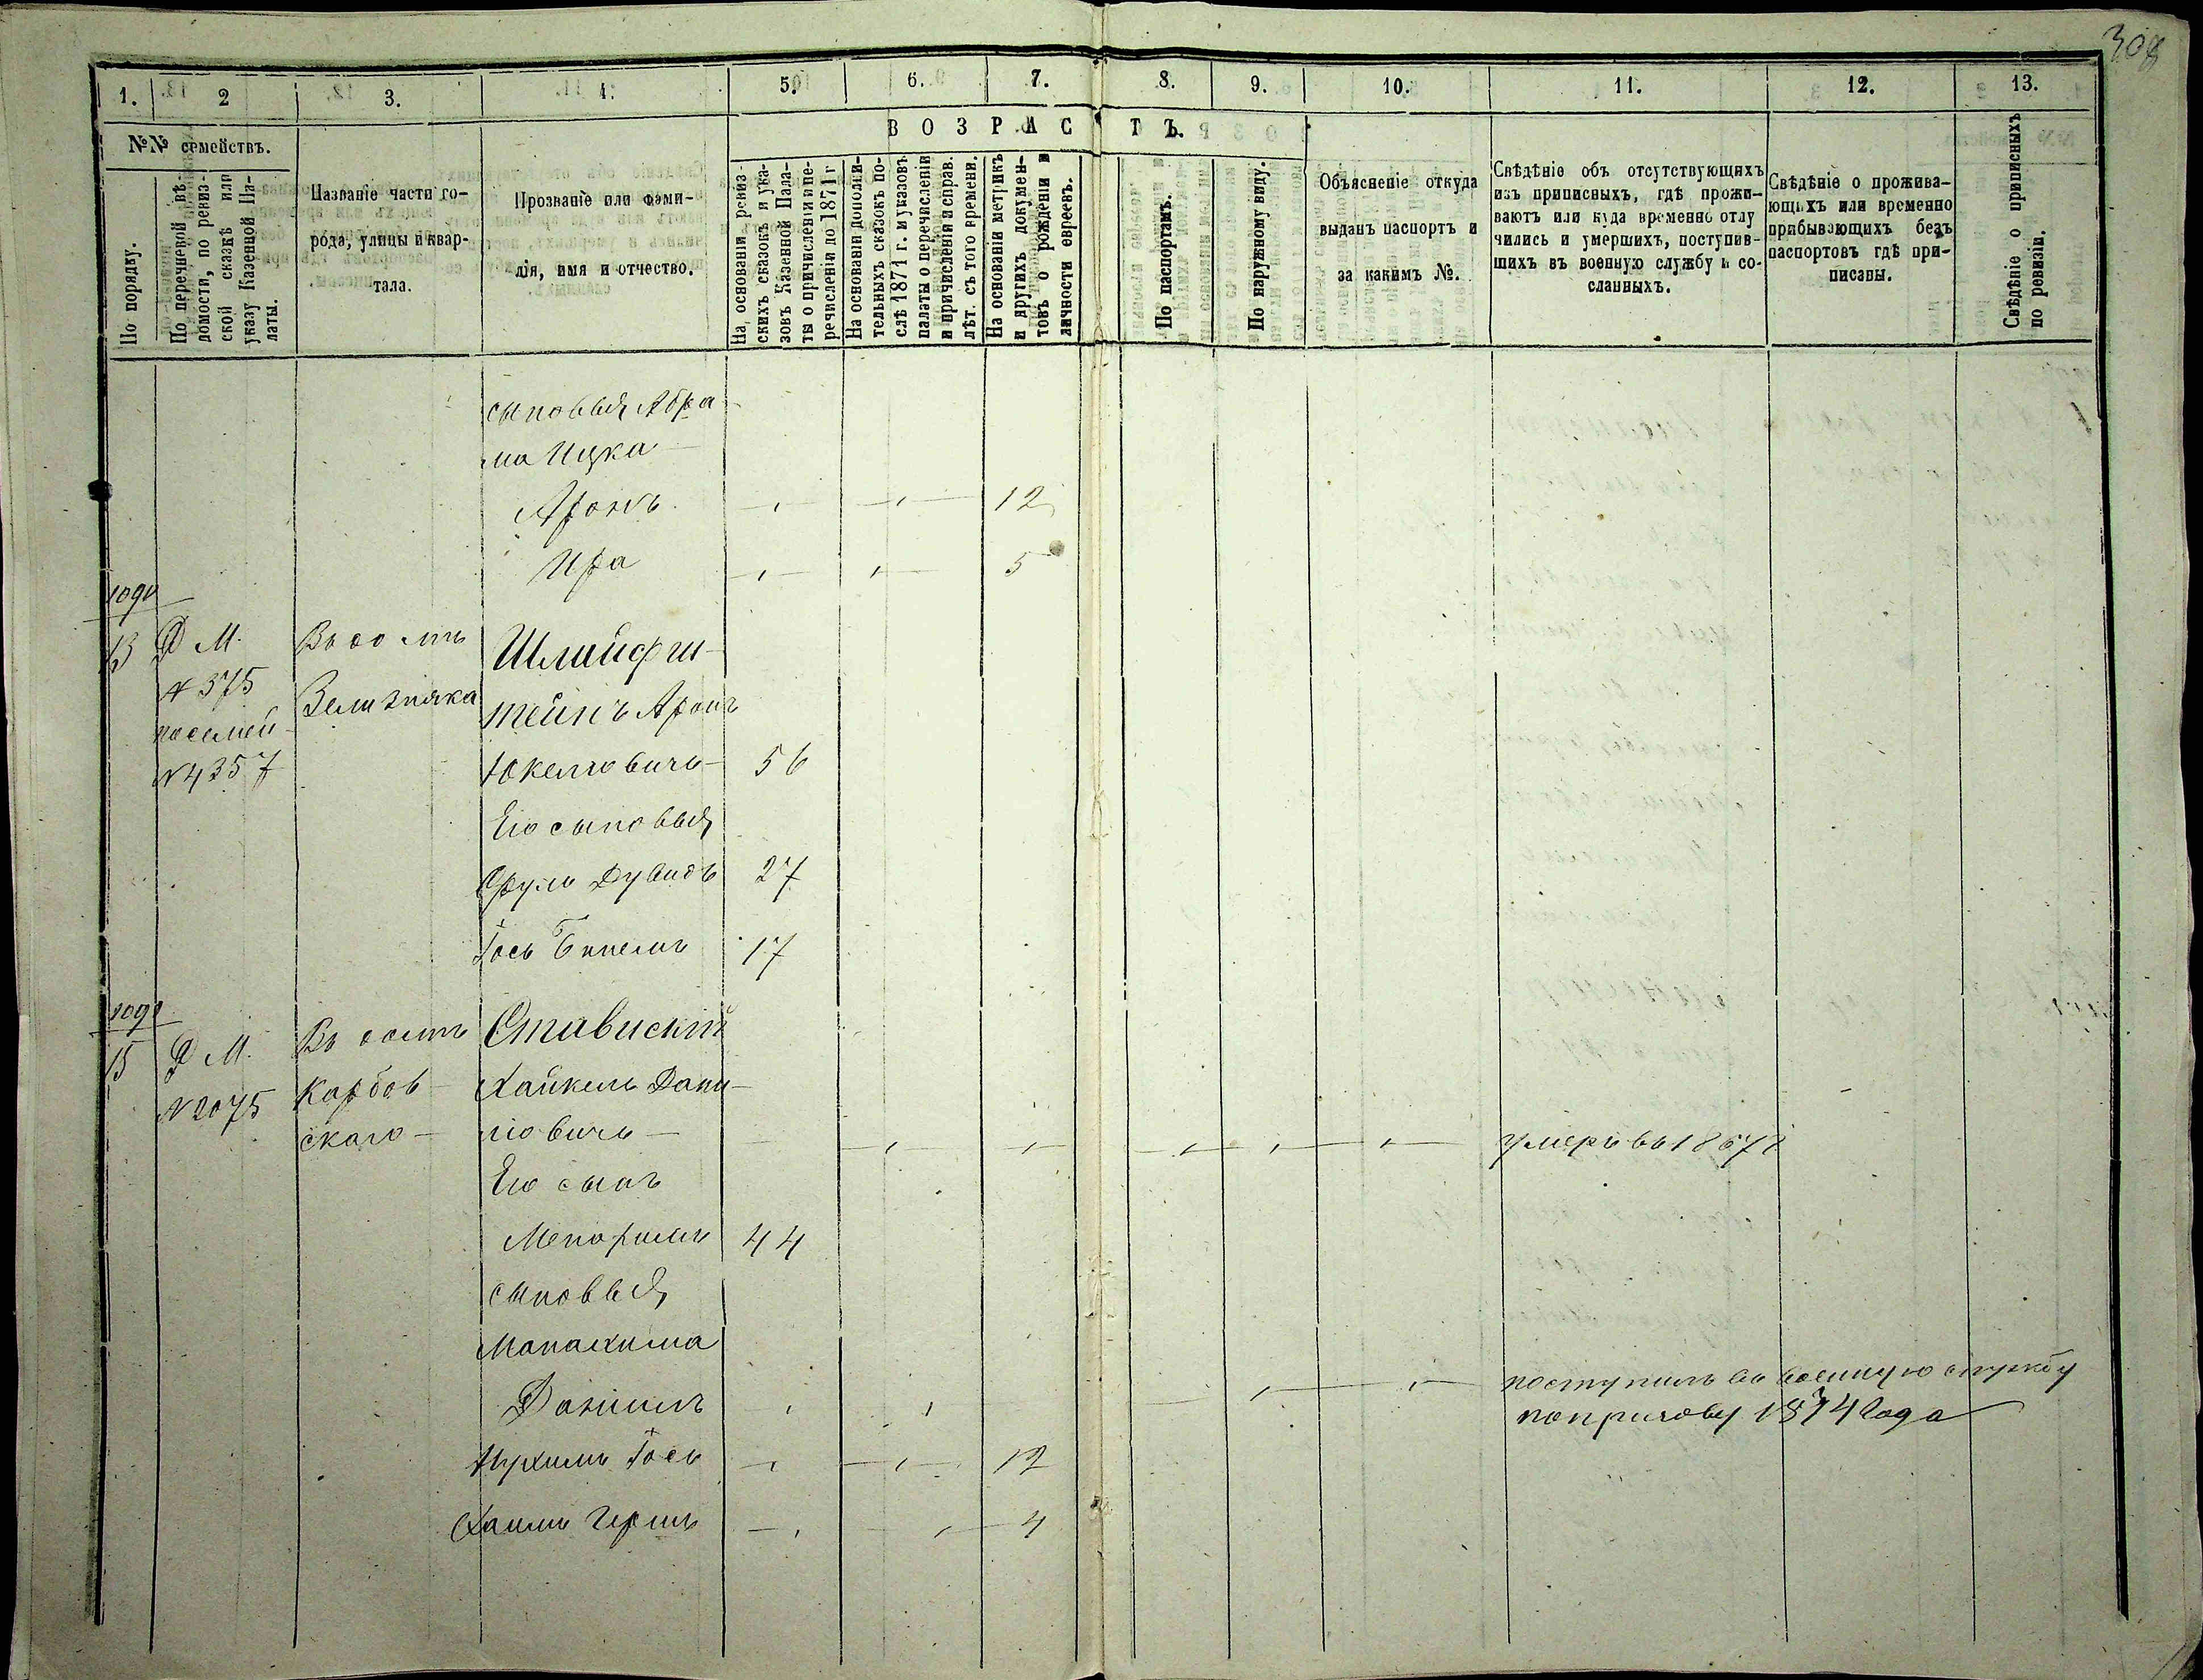 308
1. 2 3. 4. 5. 6. 7. 8. 9. 10. 11. 12. 13.
№№ семействъ.
ВОЗРАСТЪ.
По порядку.
По перечневой вѣ-
домости, по ревиз-
ской сказкѣ или
указу Казенной Па-
латы.
Названіе части го-
рода, улицы и квар-
тала.
Прозваніе или фами-
лія, имя и отчество.
На основаніи ревиз-
скихъ сказокъ и ука-
зовъ Казенной Пала-
ты о причисленіи и пе-
речисленіи до 1871 г
На основаніи дополни-
тельныхъ сказокъ по-
слѣ 1871 г. и указовъ
палаты о перечисленіи
и причисленіи и справ.
лѣт. съ того времени.
На основаніи метрикъ
и другихъ докумен-
товъ о рожденіи и
личности евреевъ.
По паспортамъ.
По наружному виду.
Объясненіе откуда
выданъ паспортъ и
за какимъ №.
Свѣдѣніе объ отсутствующихъ
изъ приписныхъ, гдѣ прожи-
ваютъ или куда временно отлу
чились и умершихъ, поступив-
шихъ въ военную службу и со-
сланныхъ.
Свѣдѣніе о прожива-
ющихъ или временно
прибывающихъ безъ
паспортовъ гдѣ при-
писаны.
Свѣдѣніе о приписныхъ
по ревизіи.
сыновья Абра
ма Ицка
Аронъ 12
Ира 5
1090
13 Д М. Шлайфш-
№ 375 тейнъ Аронъ
посемей
№ 4357 Юкелговичъ 56
Его сыновья
Срулъ Дувидъ 27
Іось 17
1091
15 Д М. Ставискій
№ 2075 Карбов- Хайкель Дани-
скаго ловичъ умеръ въ 1867 г
Его сынъ
44
сыновья
Манахима
Данiилъ поступилъ въ военную службу
попризову 1874 года
Нухимъ Іось 12
Хаимъ Гершъ 4